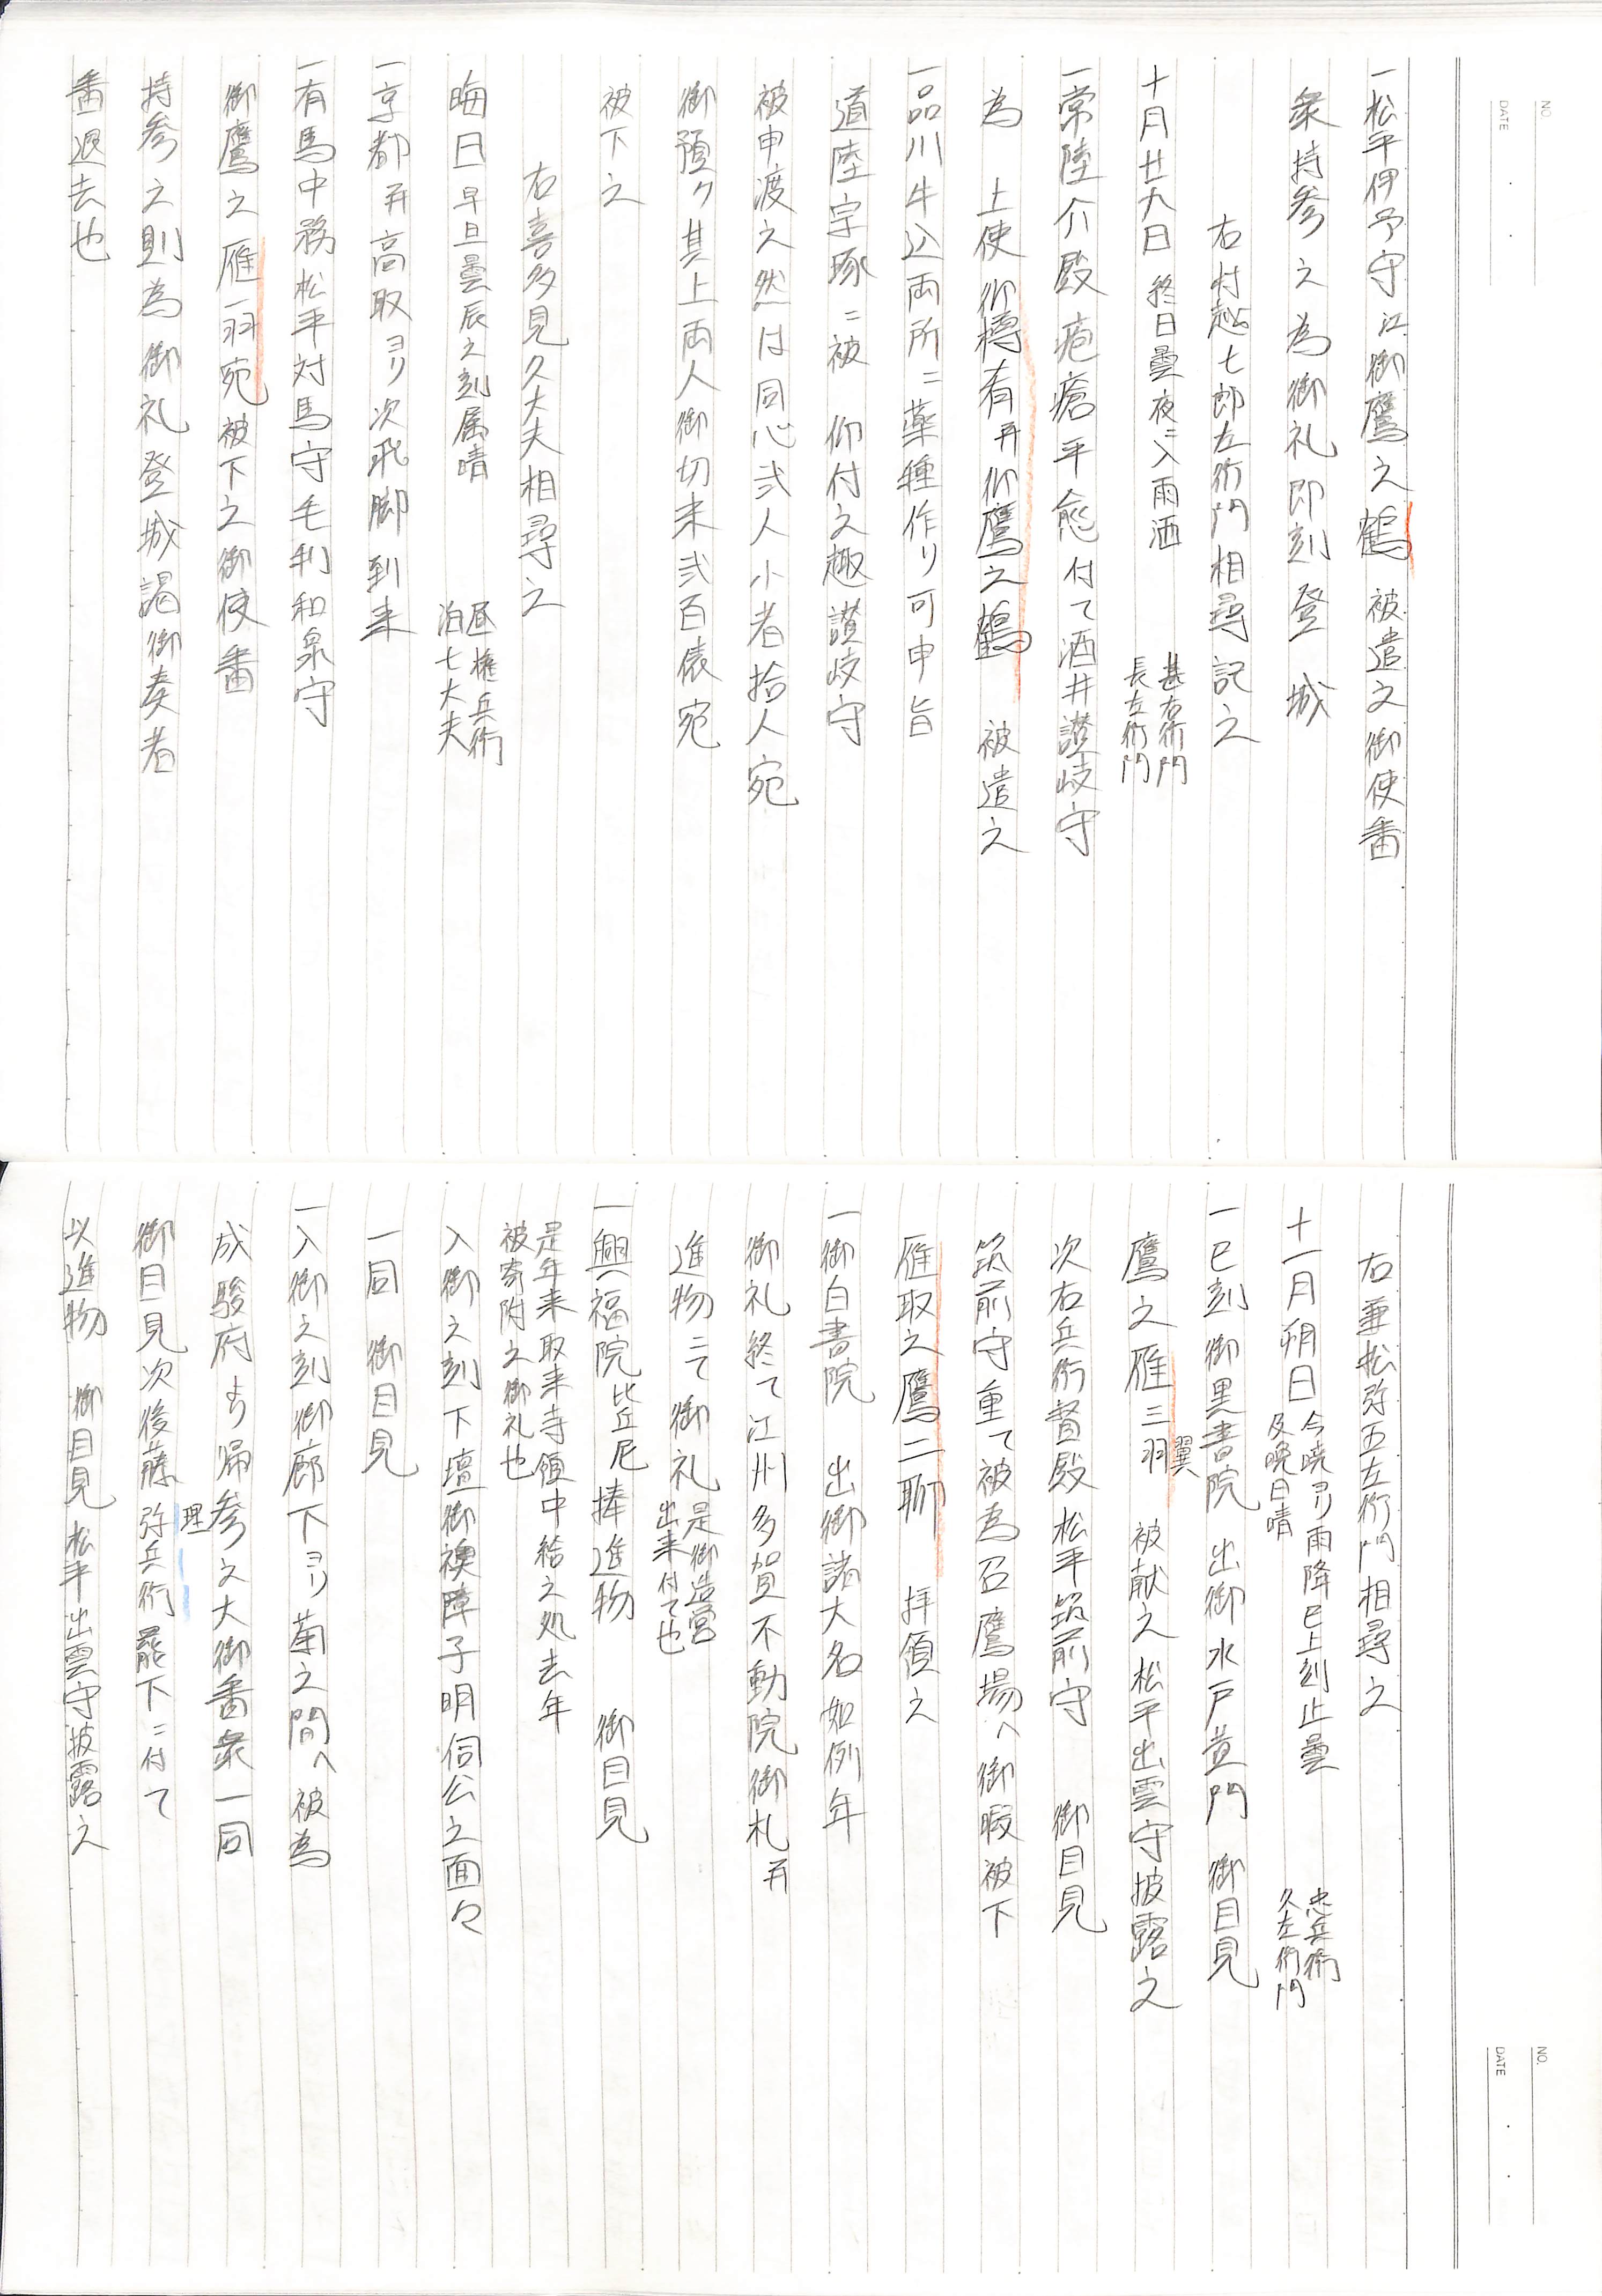 NO.
DATE
一松平伊予守江御鷹之鶴 被遣之御使番
衆持参之為御礼即刻登 城
右村越七郎左衛門相尋記之
十月廿九日 終日曇夜ニ入雨洒 甚右衛門 長左衛門
一常陸介殿疱瘡平愈付て酒井讃岐守
為 上使 御樽肴并御鷹之鶴 被遣之
一品川牛込両所ニ薬種作り可申旨
道陸宗琢ニ被 仰付之趣讃岐守
被申渡之然ハ同心弐人小者拾人宛
御預ケ其上両人御切米弐百俵宛
被下之
右喜多見久大夫相尋之
晦日 早旦曇辰之刻属晴 昼 権兵衛 泊 七大夫
一京都并高取ヨリ次飛脚到来
一有馬中務松平対馬守毛利和泉守
御鷹之雁一羽宛被下之御使番
持参之則為御礼登城謁御奏者
番退去也
NO.
DATE
右兼松弥五左衛門相尋之
十一月朔日 今暁ヨリ雨降巳上刻止曇 及晩日晴 忠兵衛 久左衛門
一巳刻御黒書院 出御水戸黄門 御目見
鷹之雁三羽 翼 被献之松平出雲守披露之
次右兵衛督殿松平筑前守 御目見
筑前守重て被為召鷹場へ御暇被下
雁取之鷹二聯 拝領之
一御白書院 出御諸大名如例年
御礼終て江州多賀不動院御札并
進物ニて御礼 是御造営 出来付て也
一興福院比丘尼捧進物 御目見
是年来取来寺領中絶之処去年
被寄附之御礼也
入御之刻下壇御襖障子明伺公之面々
一同 御目見
一入御之刻御廊下ヨリ菊之間へ被為
成駿府ゟ帰参之大御番衆一同
御目見次後藤弥兵衛 理 罷下ニ付て
以進物 御目見松平出雲守披露之